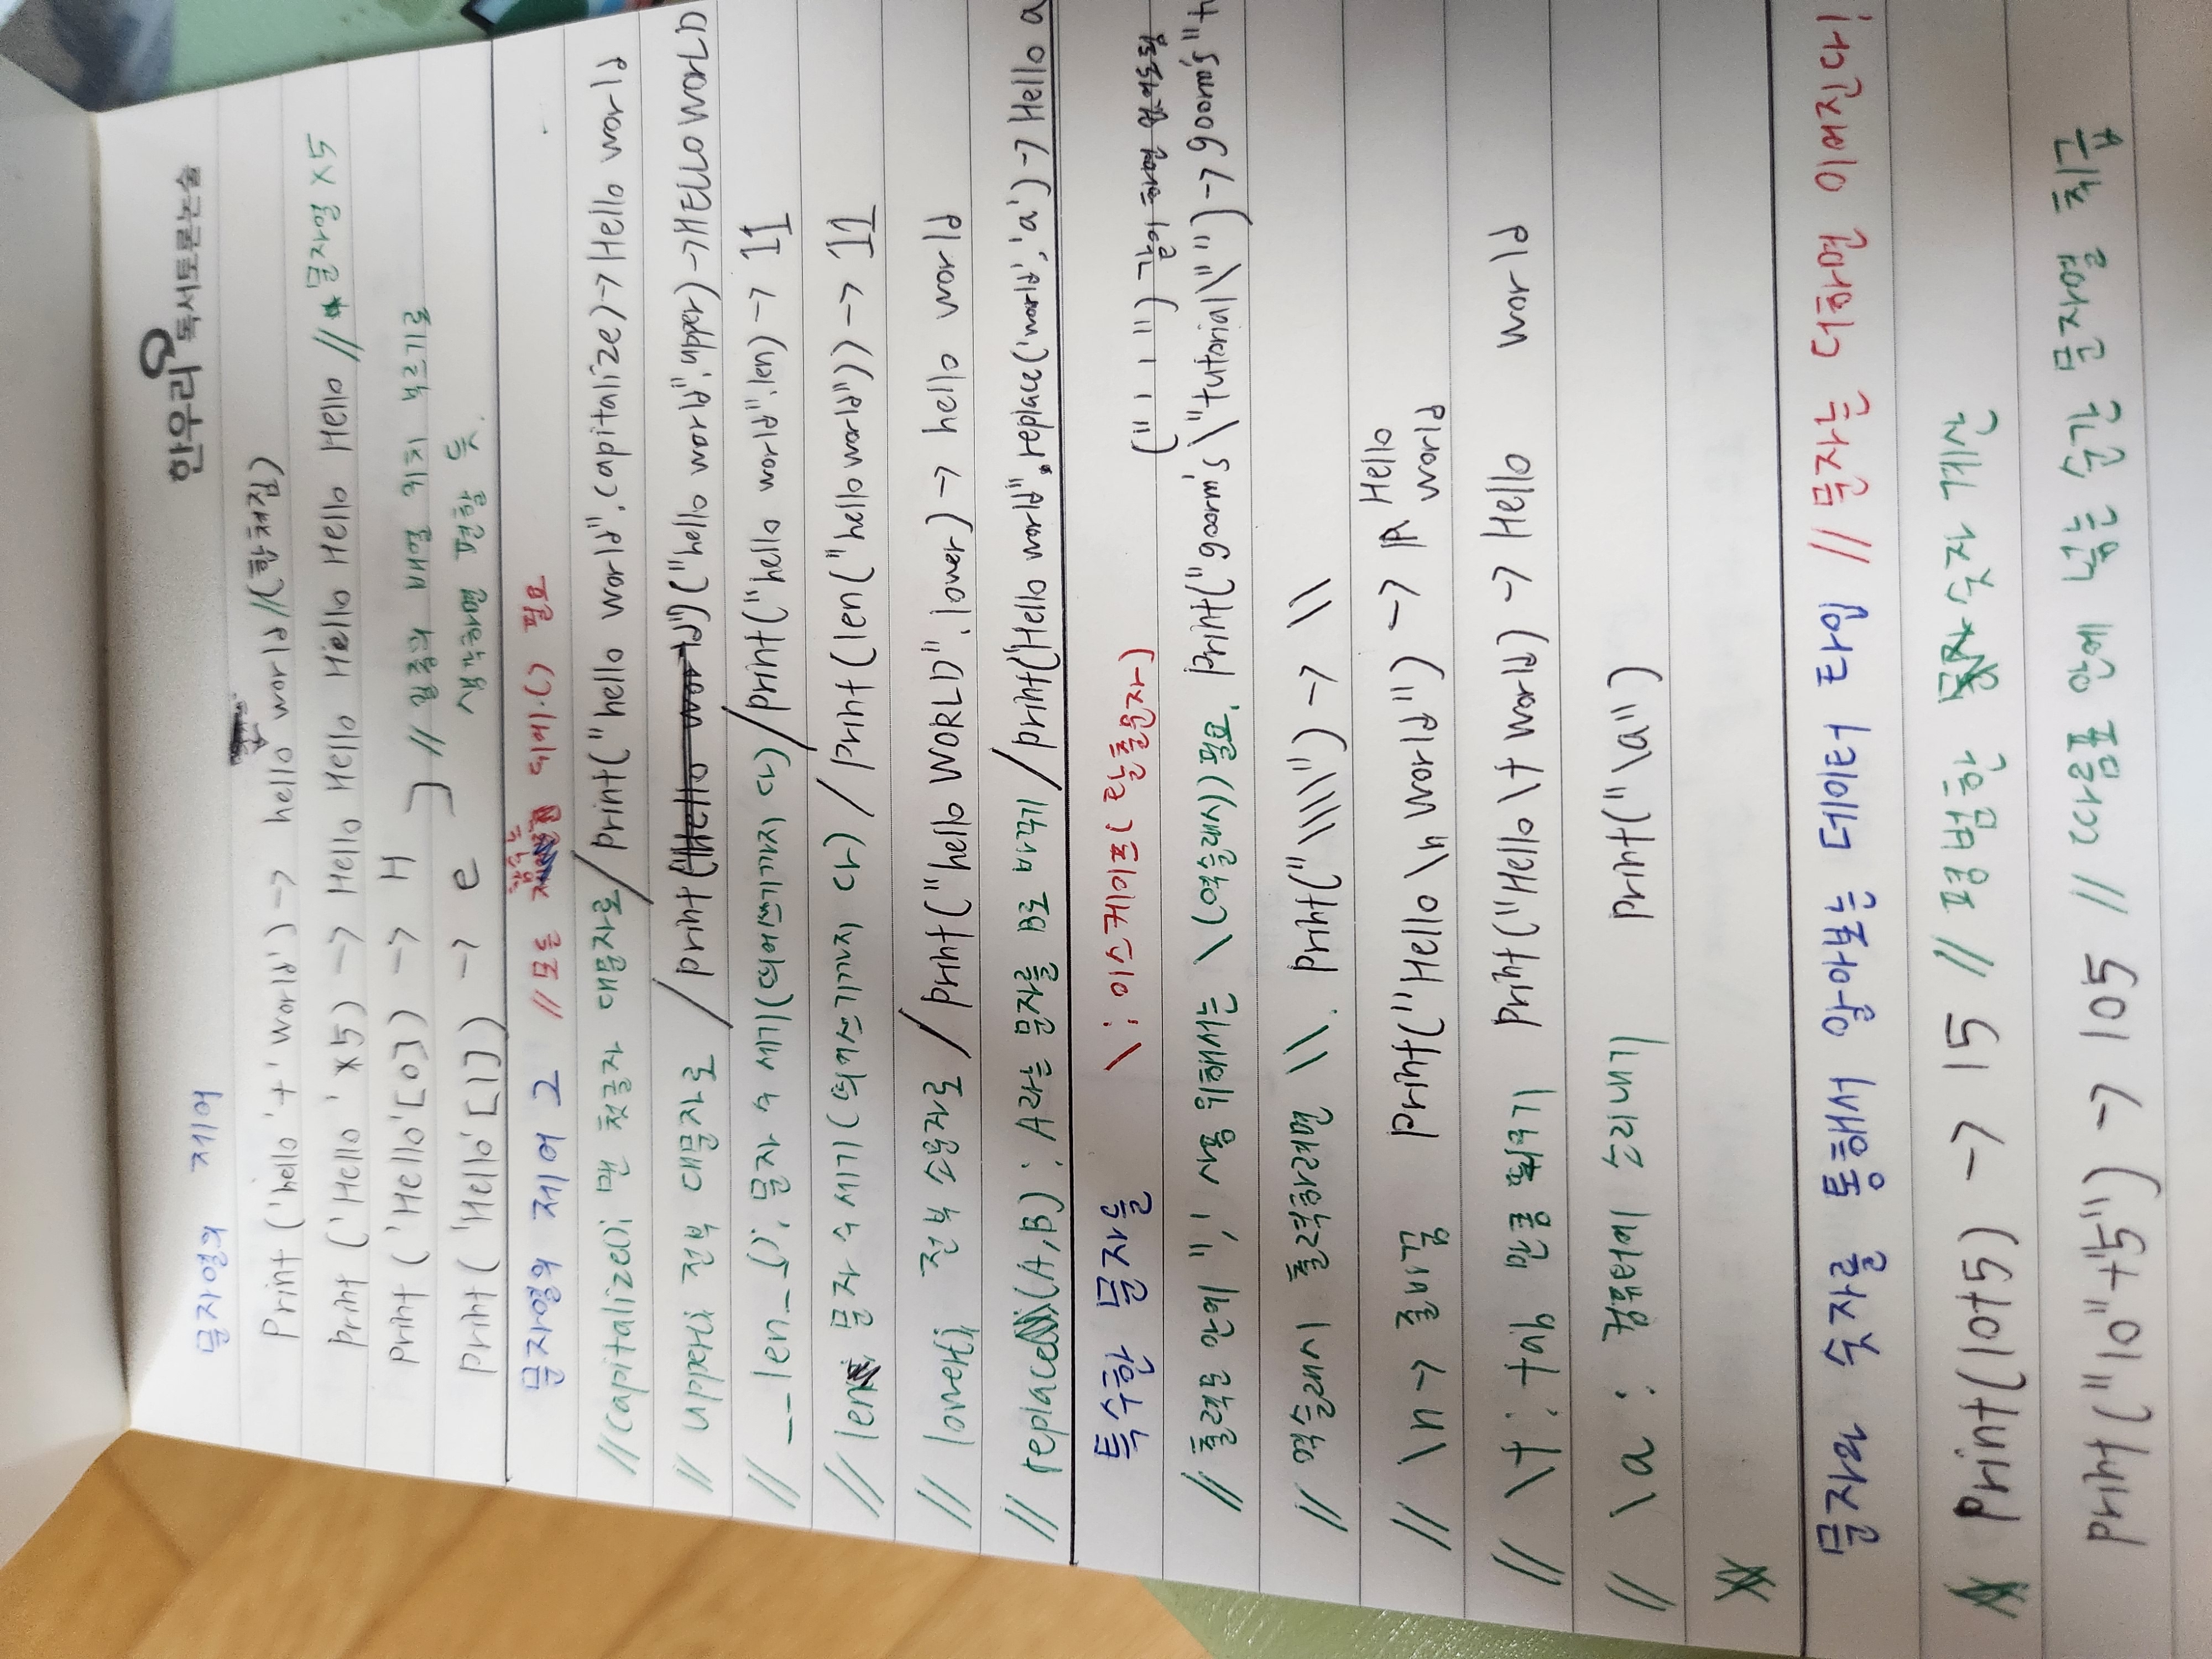 한우리 독서토론논술
문자열의 제어
Print ('hello '+' World') -> hello world //(합쳐짐)
Print ('Hello '*5) -> Hello Hello Hello Hello Hello // 문자열 x5
Print ('Hello'[0]) -> H
// 일종의 배열 위치 부르기로
Print ('Hello'[1]) -> e
생각하면 편할 듯.
문자열의 제어 2 // 모든 함수는 뒤에.() 필요
// capitalize(); 맨 첫글자 대문자로 / print("hello world".capitalize) -> Hello world
// upper(); 전부 대문자로 / print ("hello world".upper) -> HELLO WORLD
// __len__(); 문자 수 세기(띄어쓰기까지 다) / print("hello world".len) -> 11
// len 문자 수 세기(띄어쓰기까지 다) / print(len("hello world")) -> 11
// lower(); 전부 소문자로 / print("hello WORLD".lower) -> hello world
// replace(A,B) : A라는 문자를 B로 바꾸기 / print("Hello world".replace('world','a') -> Hello a
특수한 문자들 \ ; 이스케이프(탈출문자)
(" ' ' ") 같이 하면 없어도됨
// 출력문 안에 ",' 사용 위해서는 \(역슬래시) 필요. Print("goorm's \"tutorial\" ") -> goorm's "tu
// 역슬래시 출력하려면 \\. Print("\\\\") -> \\
// \n -> 줄바꿈 Print("Hello \n World") -> Hello
world
// \t ; tab 만큼 띄우기 Print("Hello \t World) -> Hello world
// \a : 컴퓨터에 소리내기 Print("\a")
문자와 숫자를 통해서 알아보는 데이터 타입 // 문자는 더하면 이어진다!
Print(10+5) -> 15 // 평범한 숫자 계산
Print("10"+"5") -> 105 // 따름표 안에 넣는 순간 문자열 취급